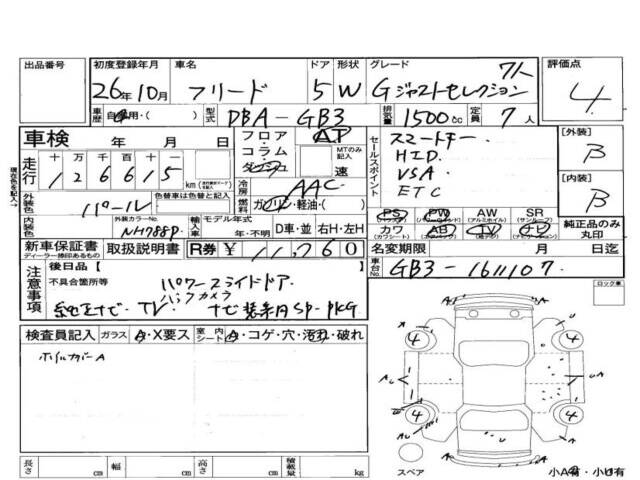 出品番号 初度登録年月 車名 ドア 形状 グレード 評価点
26年10月 フリード 5 W Gジャストセレクション 7人 4
車歴 自家用・( ) 型式 DBA-GB3 排気量 1500cc 定員 7人
車検 年 月 日
フロア・コラム・ダッシュ AP
MTのみ記入
速
走行 十 万 千 百 十 一
1 2 6 6 1 5 km
現在色を記入→
冷房 AAC
燃料 ガソリン・軽油・( )
セールスポイント
スマートキー
HID
VSA
ETC
[外装] B
[内装] B
外装色 パール
色替車は色替と記入
内装色 外装カラーNo. NH788P
輸入車 モデル年式 年・不明
D車・並 右H・左H
PS PW AW SR
(パワーウィンド) (アルミホイル) (サンルーフ)
カワ AB TV ナビ
(カワシート)
純正品のみ丸印
新車保証書 取扱説明書 R券 ¥11,760
ディーラー捺印あるもの
名変期限 月 日迄
車台No. GB3-1611107
注意事項
後日品【
不具合箇所等 パワースライドドア
バックカメラ
純正ナビ・TV ナビ装着用SP-PKG
ロック車
検査員記入 ガラス A・X要ス 室内シート A・コゲ・穴・汚れ・破れ
ホイルカバーA
4 4
4 4
長さ cm 幅 cm 高さ cm 積載量 kg
スペア
小A有・小U有